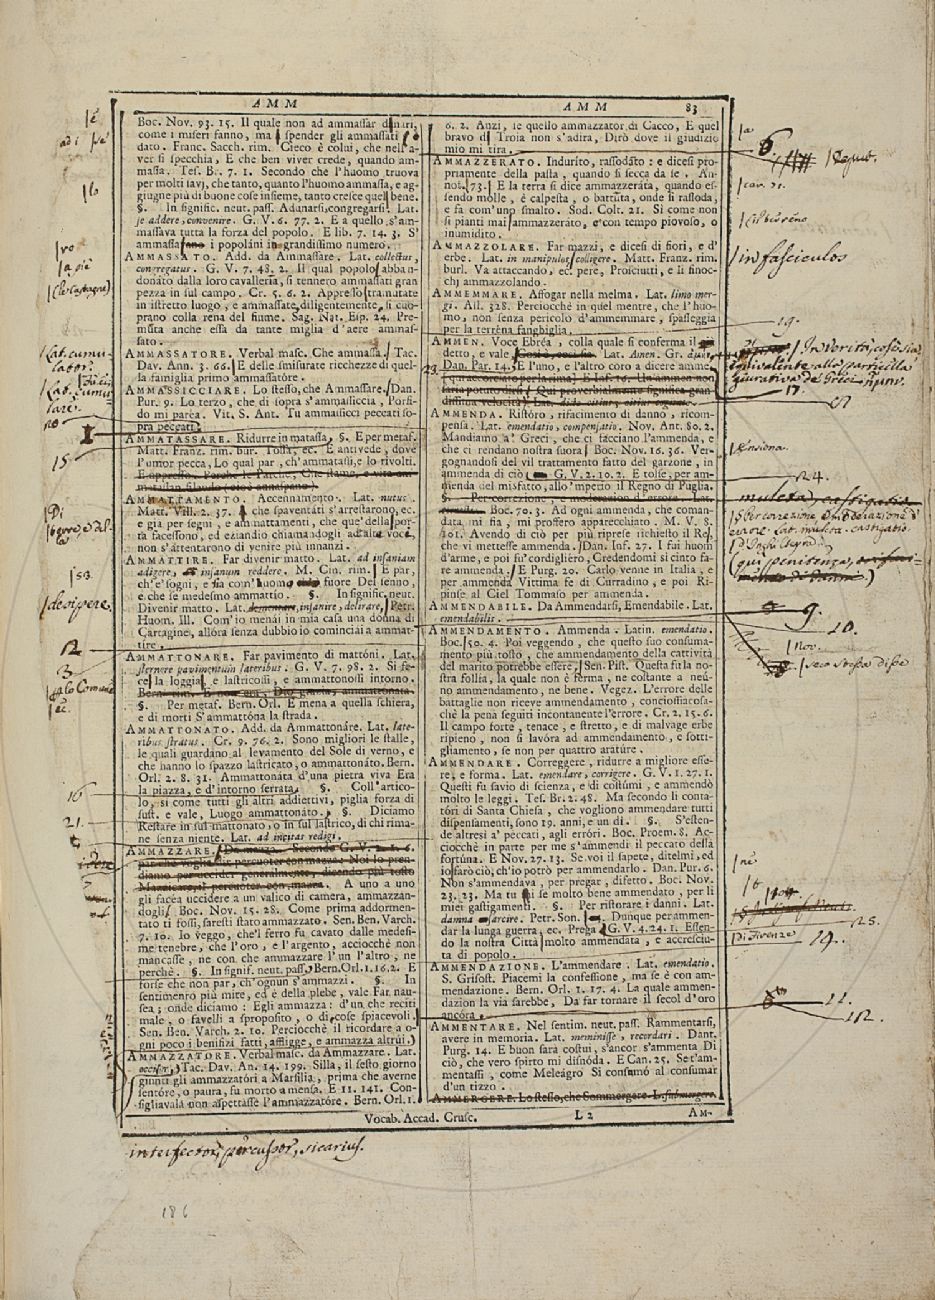 AMM
Boc. Nov. 93. 15. Il quale non ad ammassar dinari,
come i miseri fanno, ma spender gli ammassati
dato. Franc. Sacch. rim. Cieco è colui, che nell'a-
ver si specchia, E che ben viver crede, quando am-
massa. Tes. Br. 7. 1. Secondo che l'huomo truova
per molti savj, che tanto, quanto l'huomo ammassa, e ag-
giugne più di buone cose insieme, tanto cresce quel bene.
§. In signific. neut. pass. Adunarsi, congregarsi. Lat.
se addere, convenire. G. V. 6. 77. 2. E a quello s'am-
massava tutta la forza del popolo. E lib. 7. 14. 3. S'
ammassa i popoláni in grandissimo numero.
AMMASSATO. Add. da Ammassare. Lat. collectus,
congregatus. G. V. 7. 48. 2. Il qual popolo abban-
donáto dalla loro cavalleria, si tennero ammassati gran
pezza in sul campo. Cr. 5. 6. 2. Appresso tramutate
in istretto luogo, e ammassate diligentemente, si cuo-
prano colla rena del fiume. Sag. Nat. Esp. 24. Pre-
múta anche essa da tante miglia d'aere ammas-
sato.
AMMASSATORE. Verbal masc. Che ammassa. Tac.
Dav. Ann. 3. 66. E delle smisurate ricchezze di quel-
la famiglia primo ammassatóre.
AMMASSICCIARE. Lo stesso, che Ammassare. Dan.
Pur. 9. Lo terzo, che di sopra s'ammassiccia, Porfi-
do mi paréa. Vit. S. Ant. Tu ammassicci peccati so-
pra peccati.
AMMATASSARE. Ridurre in matassa. §. E per metaf.
Matt. Franz. rim. bur. Tossa, ec. E antivede, dove
l'umor pecca, Lo qual par, ch'ammatassi, e lo rivolti.
AMMATTAMENTO. Accennamento. Lat. nutus.
Matt. Vill. 2. 37. che spaventáti s'arrestarono, ec.
e già per segni, e ammattamenti, che que' della por-
ta facessono, ed eziandio chiamandogli ad alta voce,
non s'attentarono di venire più innanzi.
AMMATTIRE. Far divenir matto. Lat. ad insaniam
adigere, insanum reddere. M. Cin. rim. E par,
ch'e' sogni, e sia com' huomo fuore Del senno,
e che se medesmo ammattío. §. In signific. neut.
Divenir matto. Lat. dementare, insanire, delirare, Petr.
Huom. ill. Com'io menái in mia casa una donna di
Cartagine, allóra senza dubbio io cominciai a ammat-
tire.
AMMATTONARE. Far pavimento di mattoni. Lat.
sternere pavimentum lateribus. G. V. 7. 98. 2. Si fe-
ce la loggia, e lastricossi, e ammattonossi intorno.
§. Per metaf. Bern. Orl. E mena a quella schiera,
e di morti S'ammattóna la strada.
AMMATTONATO. Add. da Ammattonáre. Lat. late-
ribus stratus. Cr. 9. 76. 2. Sono migliori le stalle,
le quali guardano al levamento del Sole di verno, e
che hanno lo spazzo lastricato, o ammattonáto. Bern.
Orl. 2. 8. 31. Ammattonáta d'una pietra viva Era
la piazza, e d'intorno serrata. §. Coll'artico-
lo, si come tutti gli altri addiettivi, piglia forza di
sust. e vale, Luogo ammattonáto. §. Diciamo
Restare in sul mattonato, o in sul lastrico, di chi rima-
ne senza niente. Lat. ad incitas redigi.
AMMAZZARE.
A uno a uno
gli facea uccidere a un valico di camera, ammazzan-
dogli Boc. Nov. 15. 28. Come prima addormen-
tato ti fossi, saresti stato ammazzato. Sen. Ben. Varch.
7. 10. Io veggo, che'l ferro fu cavato dalle medesi-
me tenebre, che l'oro, e l'argento, acciocchè non
mancasse, ne con che ammazzare l'un l'altro, ne
perchè. §. In signif. neut. pass. Bern. Orl. 1. 16. 2. E
forse che non par, ch'ognun s'ammazzi. §. In
sentimento più mite, ed è della plebe, vale Far nau-
sea; onde diciamo: Egli ammazza: d'un che reciti
male, o favelli a sproposito, o di cose spiacevoli.
Sen. Ben. Varch. 2. 10. Perciocchè il ricordare o-
gni poco i benifizi fatti, affligge, e ammazza altrúi.
AMMAZZATORE. Verbal masc. da Ammazzare. Lat.
occisor, Tac. Dav. An. 14. 199. Silla, il sesto giorno
giunti gli ammazzatóri a Marsilia, prima che averne
sentóre, o paura, fu morto a mensa. E 11. 141. Con-
sigliavalá non aspettasse l'ammazzatóre. Bern. Orl. 1.
AMM 83
6. 2. Anzi, se quello ammazzator di Cacco, E quel
bravo di Troia non s'adira, Dirò dove il giudizio
mio mi tira.
AMMAZZERATO. Indurito, rassodato: e dicesi pro-
priamente della pasta, quando si secca da se. An-
not. 73. E la terra si dice ammazzeráta, quando es-
sendo molle, è calpesta, o battuta, onde si rassoda,
e fa com'uno smalto. Sod. Colt. 21. Si come non
si pianti mai ammazzeráto, e con tempo piovoso, o
inumidito.
AMMAZZOLARE. Far mazzi, e dicesi di fiori, e d'
erbe. Lat. in manipulos colligere. Matt. Franz. rim.
burl. Va attaccando, ec. pere, Prosciutti, e li finoc-
chj ammazzolando.
AMMEMMARE. Affogar nella melma. Lat. limo mer-
gi. All. 328. Perciocchè in quel mentre, che l'huo-
mo, non senza pericolo d'ammemmare, spasseggia
per la terréna fanghiglia.
AMMEN. Voce Ebréa, colla quale si conferma il
detto, e vale, Così è, così sia. Lat. Amen. Gr.
Dan. Par. 14. E l'uno, e l'altro coro a dicere amme.
AMMENDA. Ristóro, rifacimento di danno, ricom-
pensa. Lat. emendatio, compensatio. Nov. Ant. 80. 2.
Mandiamo a' Greci, che ci facciano l'ammenda, e
che ci rendano nostra suora. Boc. Nov. 16. 36. Ver-
gognandosi del vil trattamento fatto del garzone, in
ammenda di ciò G. V. 2. 10. 2. E tolse, per am-
menda del misfatto, allo 'mperio il Regno di Puglia.
§. Per correzione, e moderazion d'errore. Lat.
Boc. 70. 3. Ad ogni ammenda, che coman-
data, mi fia, mi proffero apparecchiato. M. V. 8.
101. Avendo di ciò per più riprese richiesto il Re,
che vi mettesse ammenda. Dan. Inf. 27. I fui huom
d'arme, e poi fu' cordigliéro, Credendomi si cinto fa-
re ammenda. E Purg. 20. Carlo venne in Italia, e
per ammenda Vittima fe di Curradino, e poi Ri-
pinse al Ciel Tommaso per ammenda.
AMMENDABILE. Da Ammendarsi, Emendabile. Lat.
emendabilis.
AMMENDAMENTO. Ammenda. Latin. emendatio.
Boc. 50. 4. Poi veggendo, che questo suo consuma-
mento più tosto, che ammendamento della cattività
del marito potrebbe essere, Sen. Pist. Questa fu la no-
stra follia, la quale non è ferma, ne costante a neú-
no ammendamento, ne bene. Vegez. L'errore delle
battaglie non riceve ammendamento, conciossiacosa-
chè la pena seguíti incontanente l'errore. Cr. 2. 15. 6.
Il campo forte, tenace, e stretto, e di malvage erbe
ripieno, non si lavóra ad ammendamento, e sotti-
gliamento, se non per quattro aratúre.
AMMENDARE. Correggere, ridurre a migliore esse-
re, e forma. Lat. emendare, corrigere. G. V. 1. 27. 1.
Questi fu savio di scienza, e di costúmi, e ammendò
molto le leggi. Tes. Br. 2. 48. Ma secondo li conta-
tóri di Santa Chiesa, che vogliono ammendare tutti
dispensamenti, sono 19. anni, e un dì. §. S'esten-
de altresì a' peccati, agli erróri. Boc. Proem. 8. Ac-
ciocchè in parte per me s'ammendi il peccato della
fortúna. E Nov. 27. 13. Se voi il sapete, ditelmi, ed
io sarò ciò, ch'io potrò per ammendarlo. Dan. Pur. 6.
Non s'ammendava, per pregar, difetto. Boc. Nov.
23. 23. Ma tu se molto bene ammendato, per li
miei gastigamenti. §. Per ristorare i danni. Lat.
damna sarcire. Petr. Son. Dunque per ammen-
dar la lunga guerra, ec. Prega G. V. 4. 24. 1. Essen-
do la nostra Città molto ammendata, e accresciu-
ta di popolo.
AMMENDAZIONE. L'ammendare. Lat. emendatio.
S. Grisost. Piacemi la confessione, ma se è con am-
mendazione. Bern. Orl. 1. 17. 4. La quale ammen-
dazion la via sarebbe, Da far tornare il secol d'oro
ancóra.
AMMENTARE. Nel sentim. neut. pass. Rammentarsi,
avere in memoria. Lat. meminisse, recordari. Dant.
Purg. 14. E buon sarà costui, s'ancor s'ammenta Di
ciò, che vero spirto mi disnóda. E Can. 25. Se t'am-
mentassi, come Meleágro Si consumó al consumar
d'un tizzo.
AMMERGERE. Lo stesso, che Sommergere. Lat. submergere.
Vocab. Accad. Crusc. L 2 AM-
interfector, percussor, sicarius.
186
in fasciculos
desipere,
19.
24.
9.
10.
25.
19.
11.
12.
15
16
21.